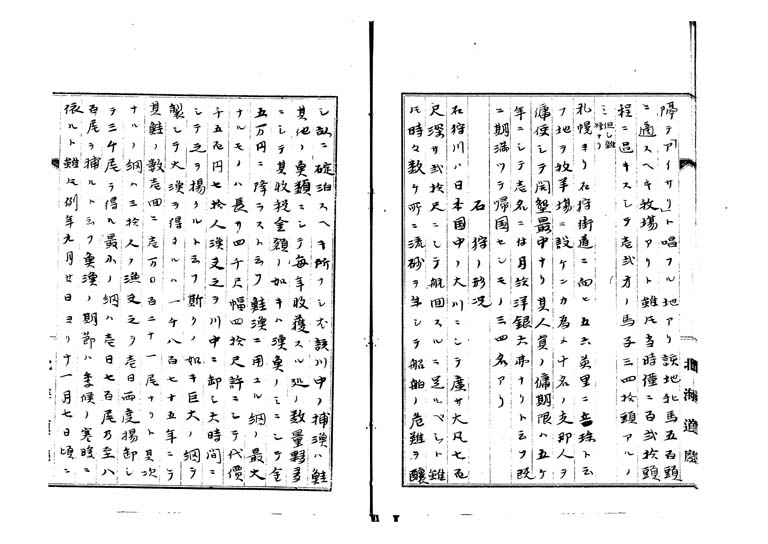 隔テアイサリト唱フル地アリ該地牝馬五百頭
ニ適スヘキ牧場アリト雖𪜈当時僅ニ百弐拾頭
程ニ過キスシテ壱弐才ノ馬子三四拾頭アルノ
ミ
札幌ヨリ石狩街道ニ向ヒ五六英里ニ
フ地ヲ牧羊場ニ設ケンカ為メ十名ノ支那人ヲ
傭使シテ開墾最中ナリ其人員ノ傭期限ハ五ケ
年ニシテ壱名ニ付月給洋銀六弗ナリト云フ既
ニ期満ツヲ帰国セシモノ三四名アリ
石狩ノ形況
石狩川ハ日本国中ノ大川ニシテ廣サ大凡七百
尺深サ弐拾尺ニシテ航回スルニ足ルベシト雖
𪜈時々数ケ所ニ流砂ヲ生シテ船舶ノ危難ヲ醸
シ故ニ碇泊スヘキ所ナシ
該川中ノ捕漁ハ鮭
其他ノ魚類ニシテ毎年収獲スル処ノ数量夥多
ニシテ其收税金額ノ如キハ漁魚ノミニシテ金
五万円ニ降ラスト云フ鮭漁ニ用ユル網ノ最大
ナルモノハ長サ四千尺幅四拾尺許ニシテ代價
千五百円七拾人漁夫之ヲ川中ニ卸シ大時間ニ
シテ之ヲ揚クルト云フ斯クノ如キ巨大ノ網ヲ
製シテ大漁ヲ得タルハ一千八百七十五年ニテ
其鮭ノ数壱回ニ壱万〇百二十一尾ナリト其次
ナルノ網ハ三拾人ノ漁夫之ヲ壱日両度揚卸シ
ヲ三千尾ヲ得ル最小ノ網ハ壱日七百尾乃至八
百尾ヲ捕ルト云フ魚漁ノ期節ハ季候ノ寒暖ニ
依ルト雖𪜈例年九月廿日ヨリ十一月七日頃ニ
北海道廳